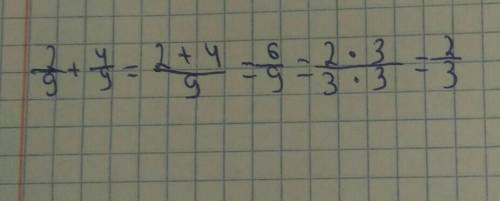 2/9 + 4/9 = (2 + 4)/9 = 6/9 = (2 · 3)/(3 · 3) = 2/3